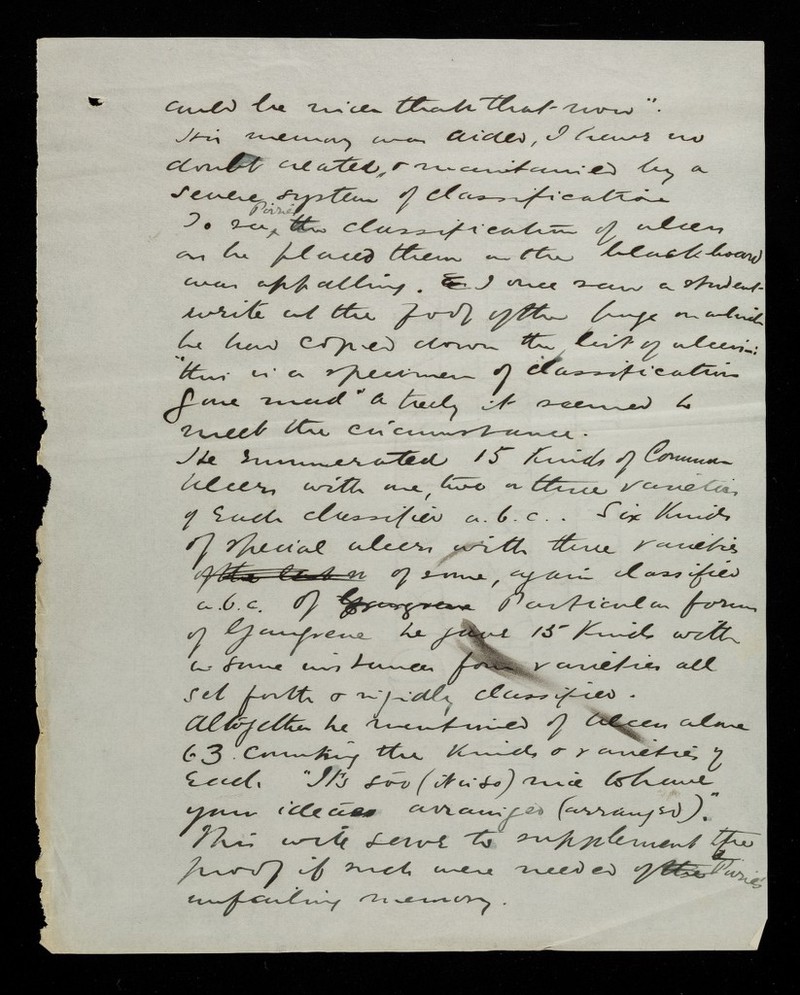 could be nicer than that now".
His memory was aided, I have no
doubt created, & maintained by a
severe system of classification
To see Pirrie's the classification of ulcers
as he placed them on the blackboard
was appalling. I once saw a student
write at the foot of the page on which
he had copied down the list of ulcers:
"this is a specimen of classification
gone mad" & truly it seemed to
meet the circumstance.
He enumerated 15 Kinds of Common
Ulcers with one, two or three varieties
of Each classified a.b.c.. Six Kinds
of special ulcers with three varieties
of the last of some, again classified
a.b.c. Of Gangrene Particular forms
of Gangrene he gave 15 Kinds with
in some instances four varieties all
set forth & rigidly classified.
Altogether he mentioned of Ulcers alone
63. Counting the Kinds & varieties of
Each "It's soo (it is so) nice to have
your ideas arranged (arranged)."
This will serve to supplement the
proof if such were needed of the Pirrie's
unfailing memory.